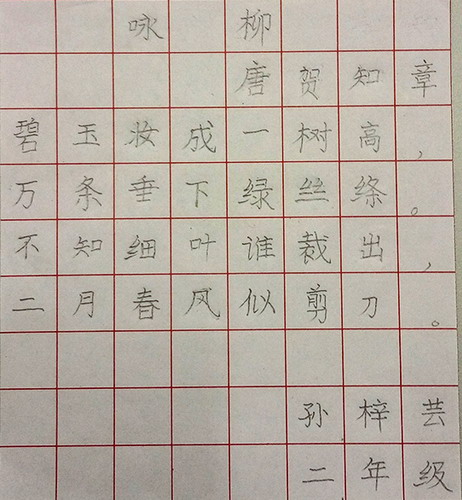 咏柳
唐贺知章
碧玉妆成一树高，
万条垂下绿丝绦。
不知细叶谁裁出，
二月春风似剪刀。
孙梓芸
二年级